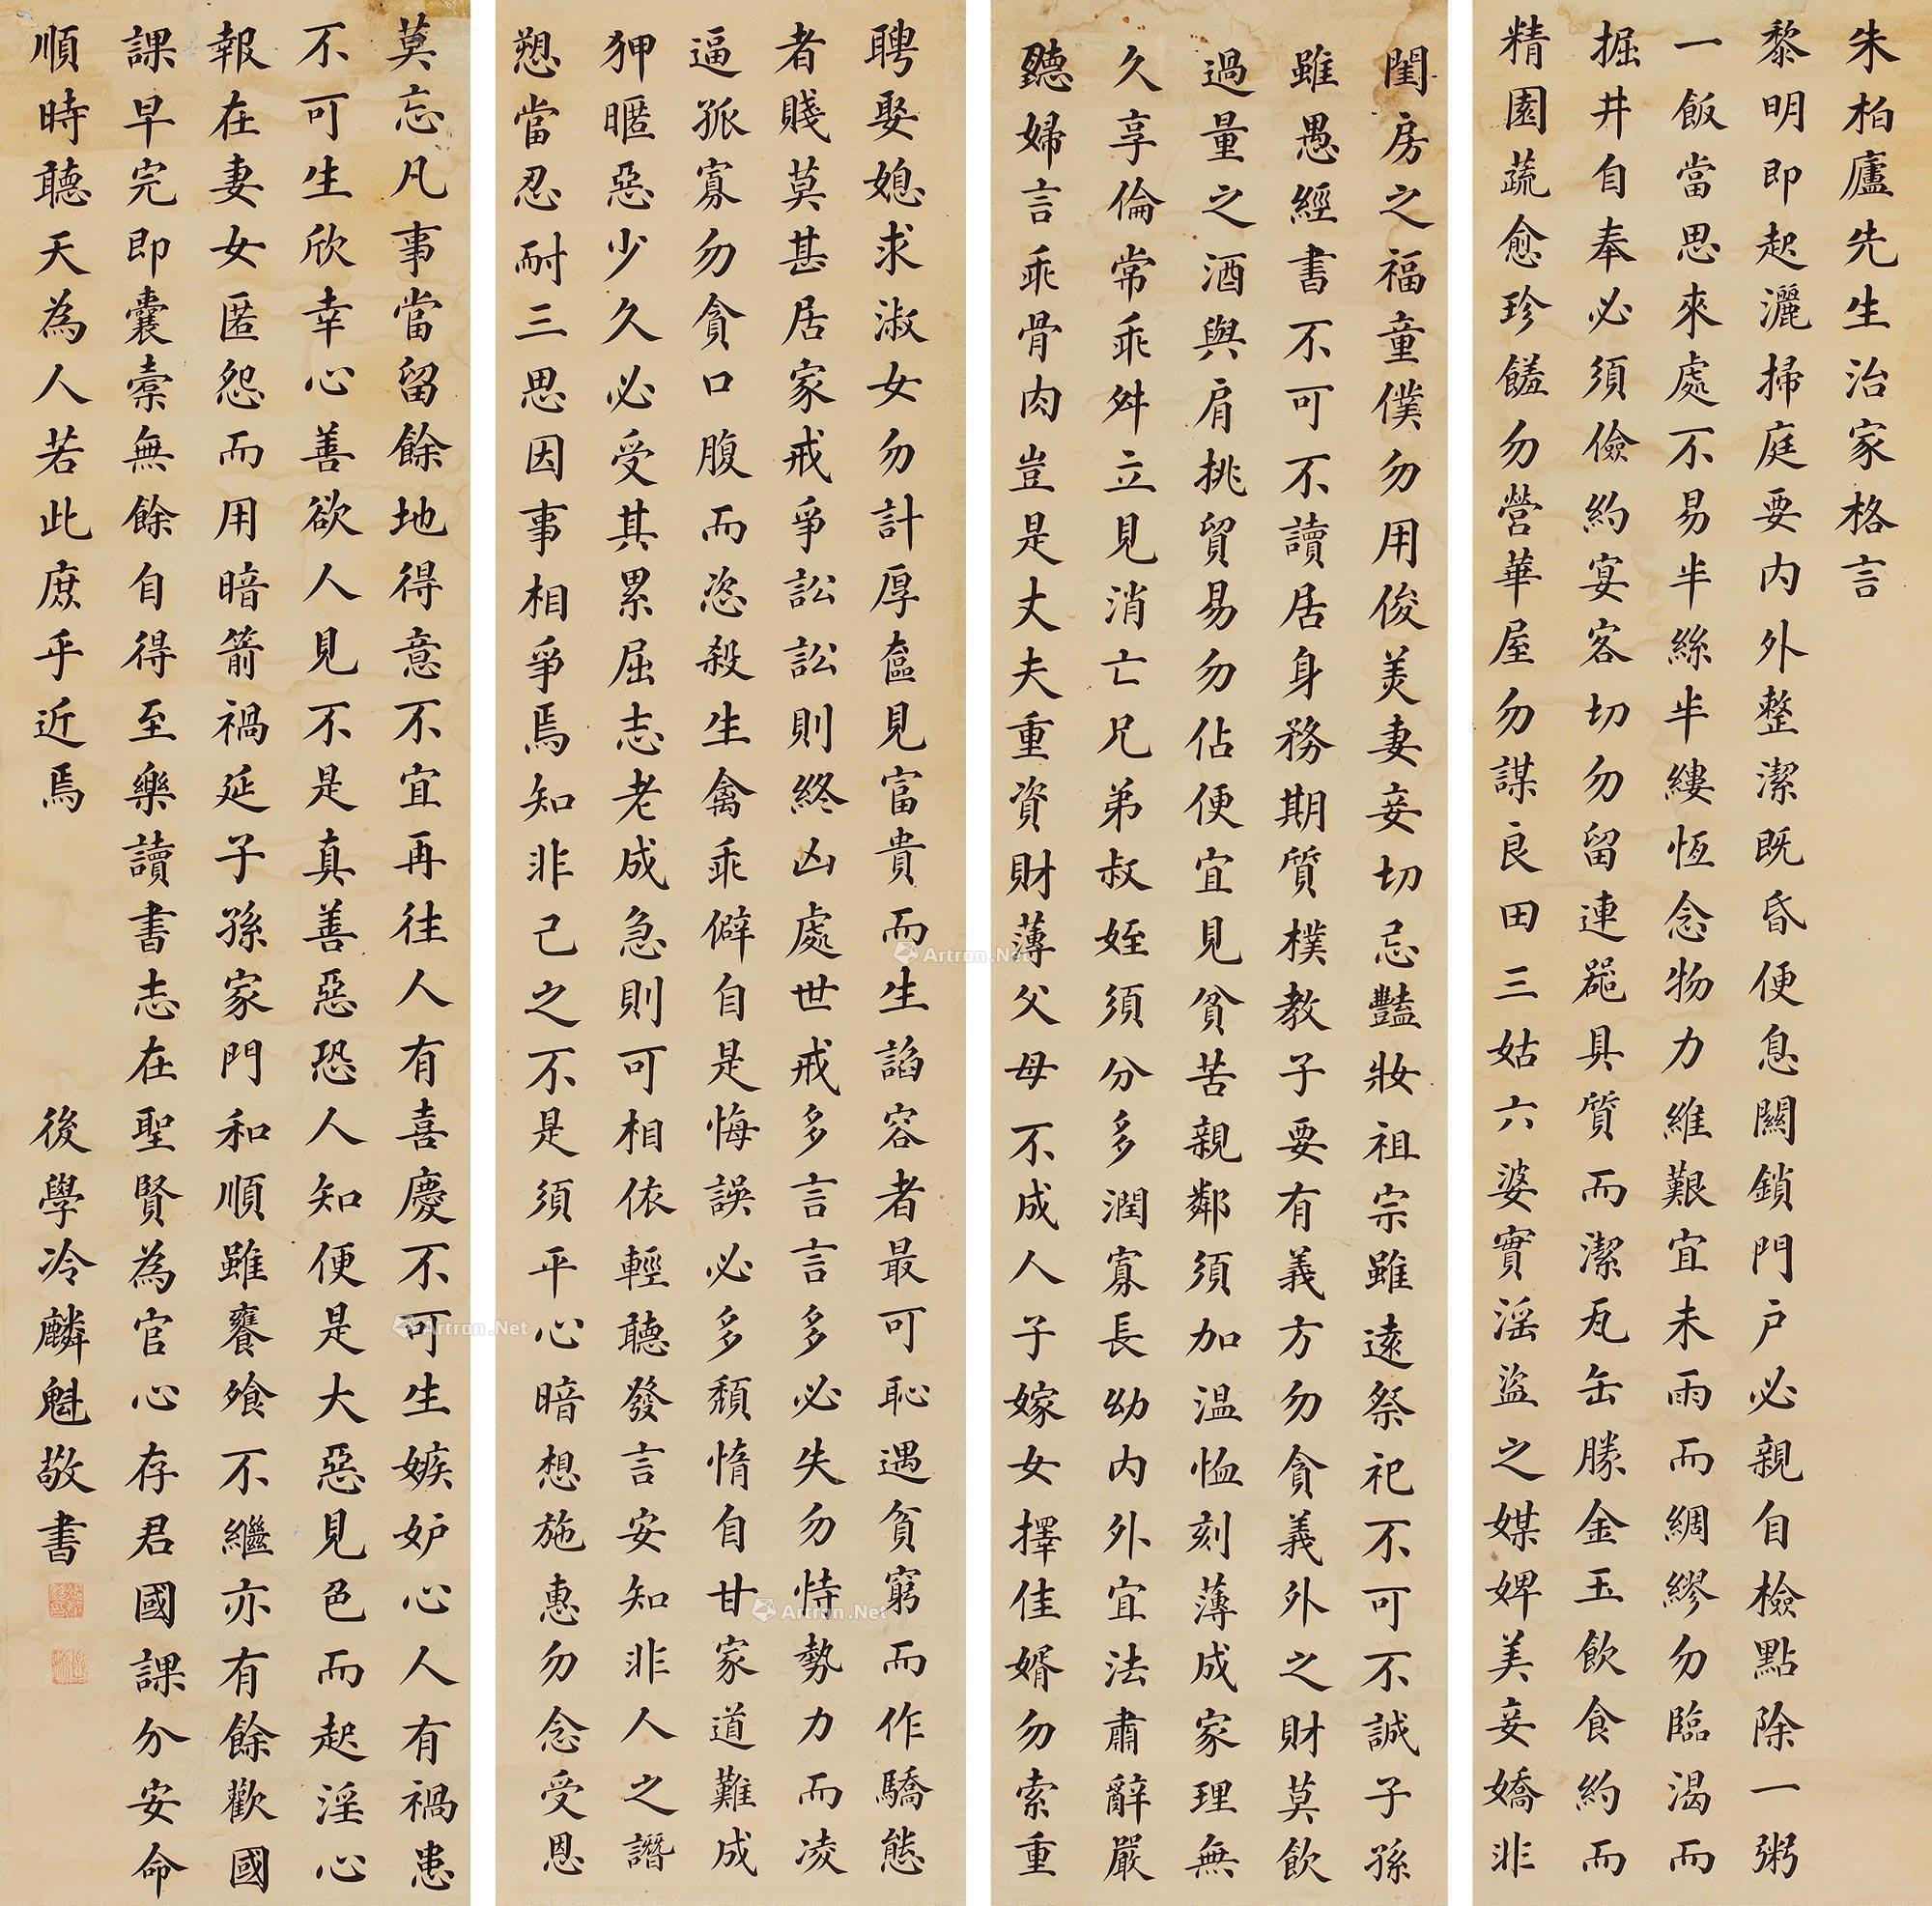 朱柏廬先生治家格言
黎明即起灑掃庭要內外整潔既昏便息關鎖門戶必親自檢點除一粥
一飯當思來處不易半絲半縷恆念物力維艱宜未雨而綢繆勿臨渴而
掘井自奉必須儉約宴客切勿留連器具質而潔瓦缶勝金玉飲食約而
精園蔬愈珍饈勿營華屋勿謀良田三姑六婆實淫盜之媒婢美妾嬌非
閨房之福童僕勿用俊美妻妾切忌豔妝祖宗雖遠祭祀不可不誠子孫
雖愚經書不可不讀居身務期質樸教子要有義方勿貪義外之財莫飲
過量之酒與肩挑貿易勿佔便宜見貧苦親鄰須加温恤刻薄成家理無
久享倫常乖舛立見消亡兄弟叔姪須分多潤寡長幼內外宜法肅辭嚴
聽婦言乖骨肉豈是丈夫重資財薄父母不成人子嫁女擇佳婿勿索重
聘娶媳求淑女勿計厚奩見富貴而生諂容者最可恥遇貧窮而作驕態
者賤莫甚居家戒爭訟訟則終凶處世戒多言言多必失勿恃勢力而凌
逼孤寡勿貪口腹而恣殺生禽乖僻自是悔誤必多頹惰自甘家道難成
狎暱惡少久必受其累屈志老成急則可相依輕聽發言安知非人之譖
愬當忍耐三思因事相爭焉知非己之不是須平心暗想施惠勿念受恩
莫忘凡事當留餘地得意不宜再往人有喜慶不可生嫉妒心人有禍患
不可生欣幸心善欲人見不是真善惡恐人知便是大惡見色而起淫心
報在妻女匿怨而用暗箭禍延子孫家門和順雖饔飧不繼亦有餘歡國
課早完即囊橐無餘自得至樂讀書志在聖賢為官心存君國課分安命
順時聽天為人若此庶乎近焉
後學冷麟魁敬書
Artron.Net
Artron.Net
Artron.Net